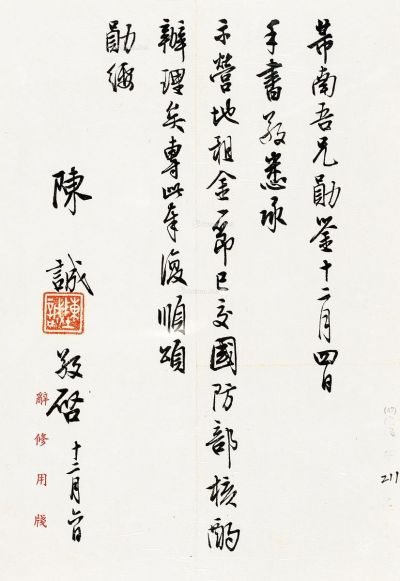 芾南吾兄勛鑒十二月四日
手書敬悉承
示營地租金一節已交國防部核酌
辦理矣專此奉復順頌
勛綏
陳誠
敬啓 十二月六日
辭修用牋
211